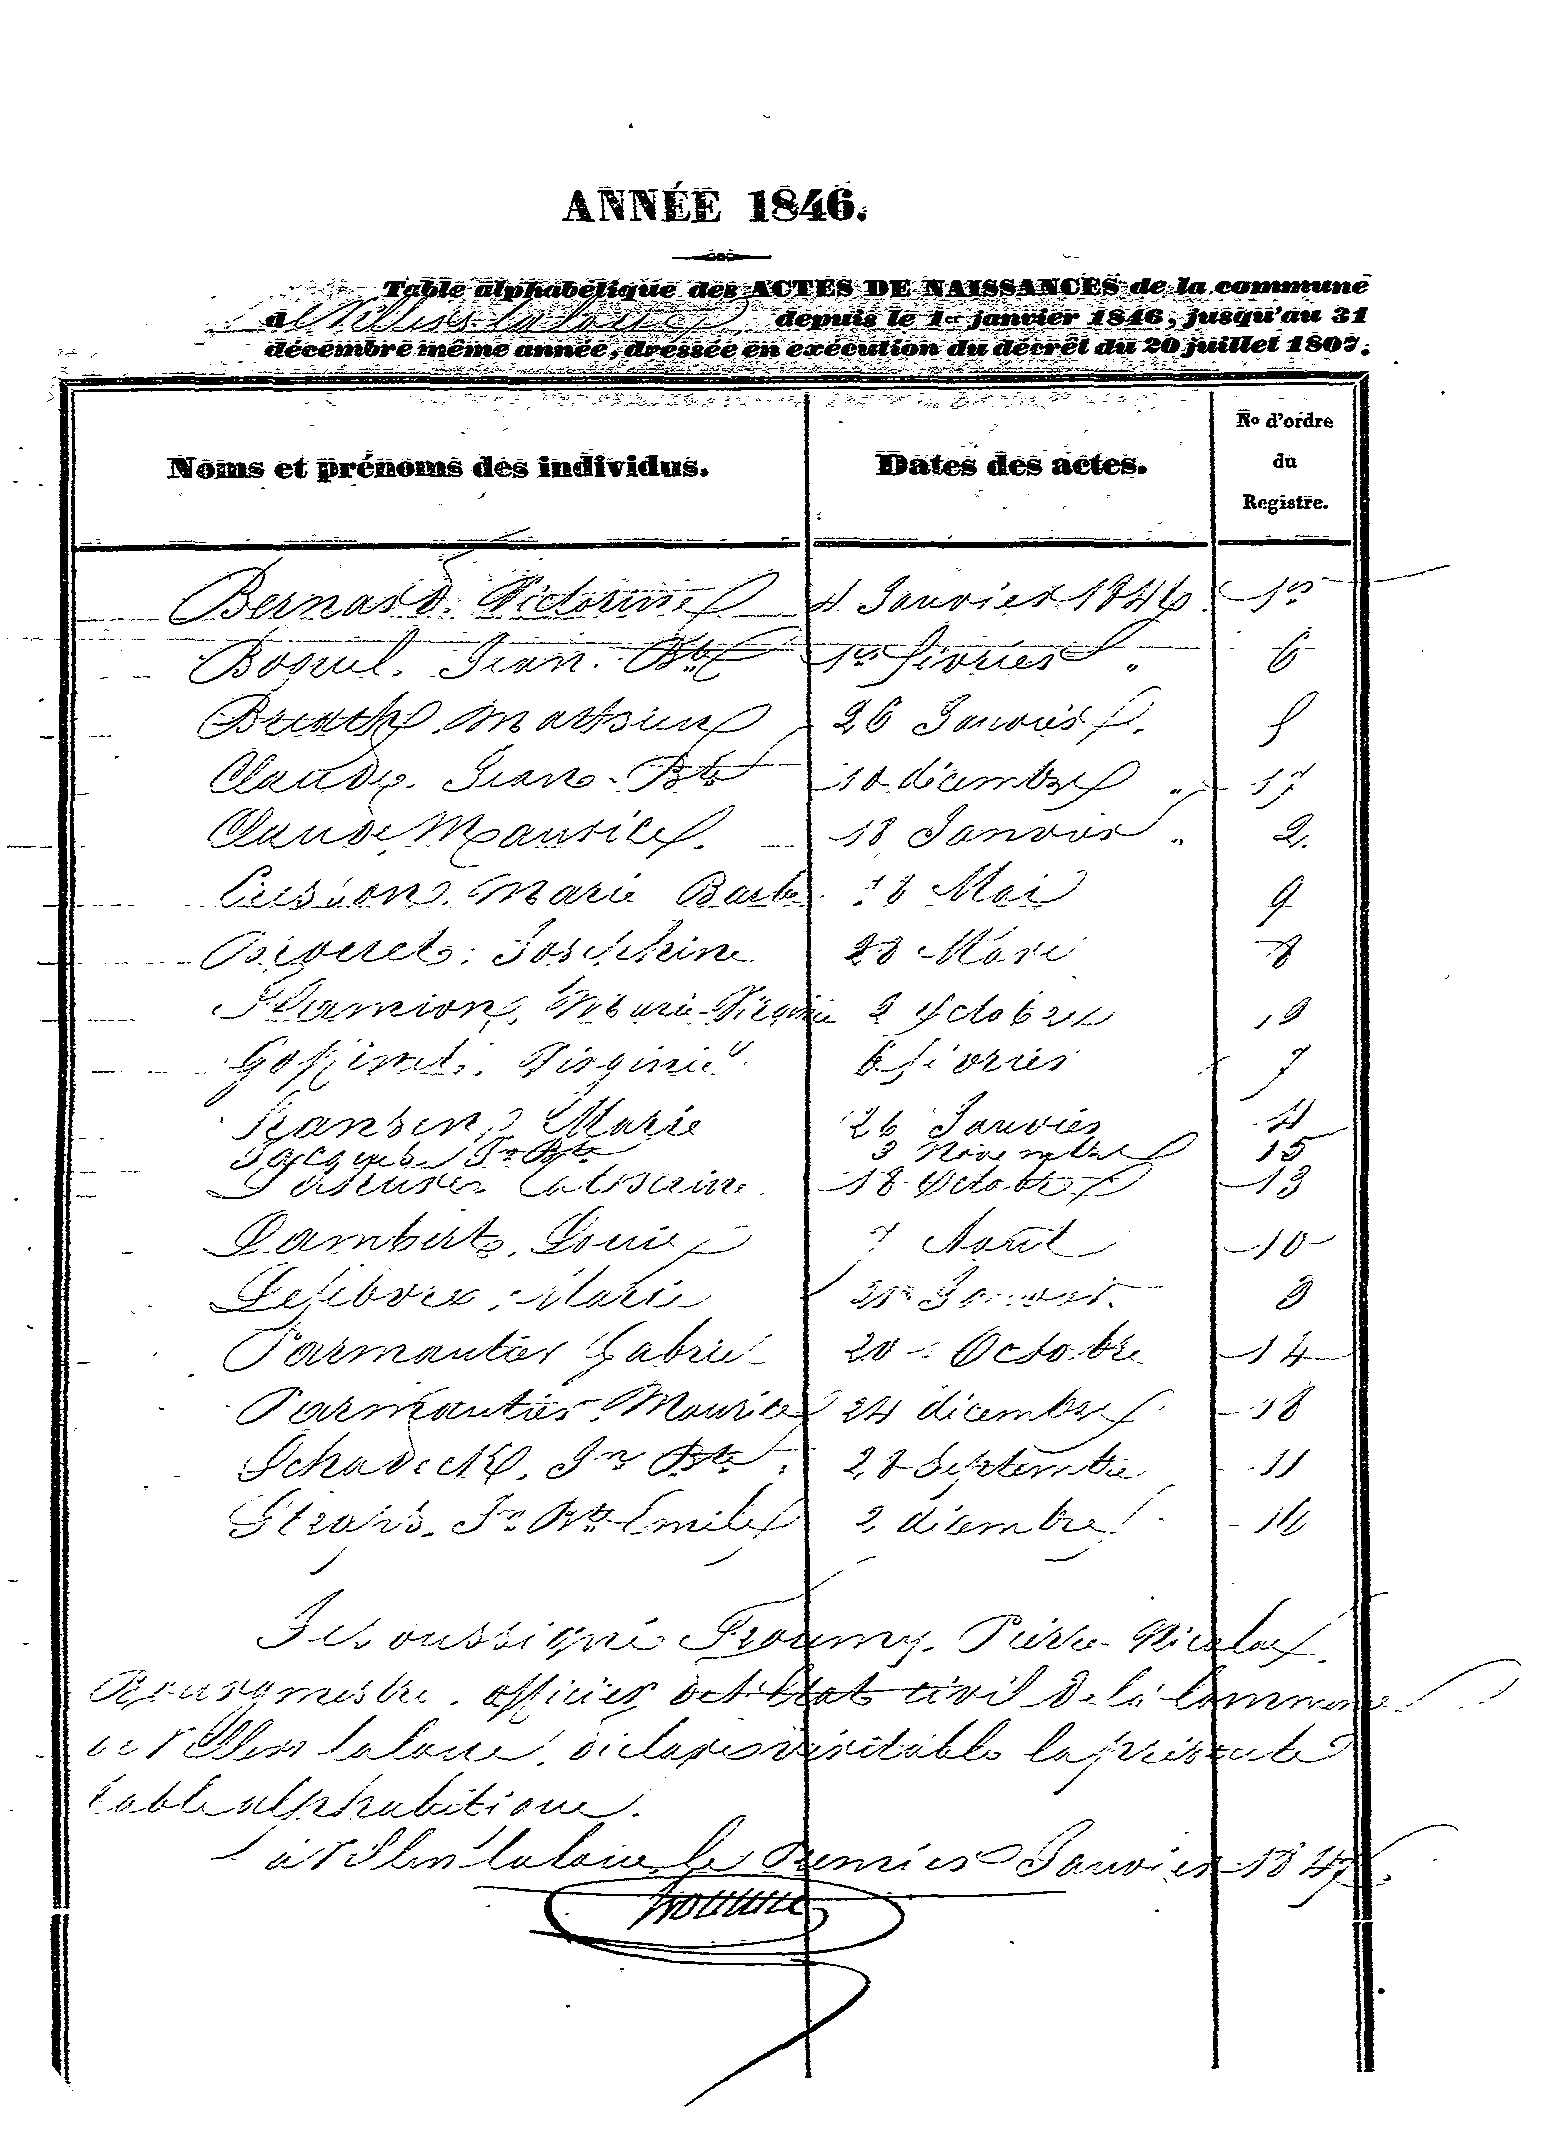 ANNÉE 1846.
Table alphabétique des ACTES DE NAISSANCES de la commune
d Villers la loue depuis le 1er janvier 1846, jusqu'au 31
décembre même année, dressée en exécution du décrêt du 20 juillet 1807.
Noms et prénoms des individus. Dates des actes. No d'ordre du Registre.
Bernard. Victorine 4 Janvier 1846. 1er
Boquel. Jean. Bte 1er février " 6
Mathieu 26 Janvier 5
Claude. Jean-Bte 10 décembre " 17
Claude Maurice. 18 Janvier " 2.
Marie Barbe 18 Mai 9
Josephine 28 Mars 8
Marie-Virginie 2 Octobre 12
Goffinet. Virginie 6 février 7
Hansen, Marie 26 Janvier 4
Jacques Jn Bte 3 Novembre 15
Catherine 18 Octobre 13
Lambert, Louis 7 Août 10
Lefebvre, Marie Janvier. 3
Parmentier Gabriel 20 Octobre 14
Parmentier. Maurice 24 décembre 18
Schadeck, Jn Bte 28 Septembre 11
Jn Bte Emile 2 décembre 16
Je soussigné Froumy, Pierre Nicolas,
Bourgmestre, officier de l'état civil de la Commune
de Villers la loue, déclare véritable la présente
table alphabétique.
à Villers la loue, le Premier Janvier 1847.